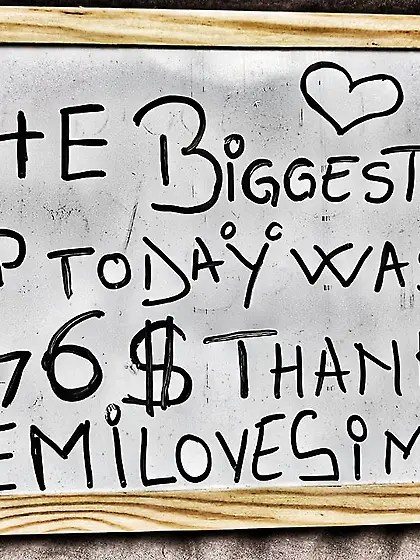 HE BiGGEST
P TODAY WAS
76 $ THAN
EMiLOVESiM